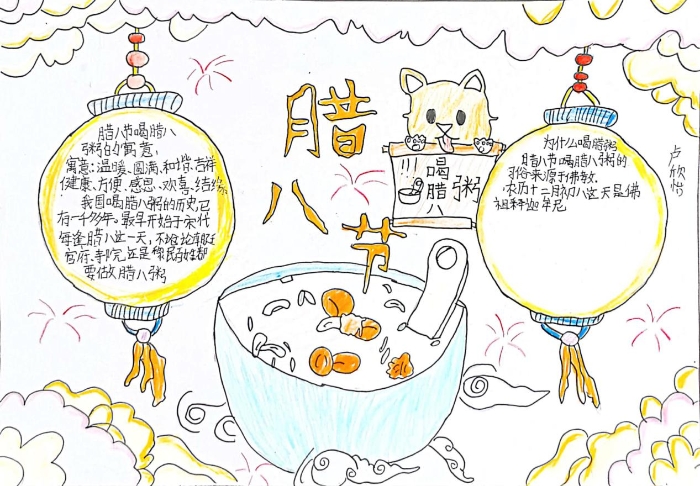 腊八节
喝
腊
八
粥
腊八节喝腊八
粥的寓意,
寓意:温暖、圆满、和谐、吉祥
健康、方便、感恩、欢喜、结缘。
我国喝腊八粥的历史,已
有一千多年。最早开始于宋代
每逢腊八这一天,不论朝廷
官府、寺院还是黎民百姓都
要做腊八粥
为什么喝腊粥
腊八节喝腊八粥的
习俗来源于佛教.
农历十二月初八这天是佛
祖释迦牟尼
卢欣怡